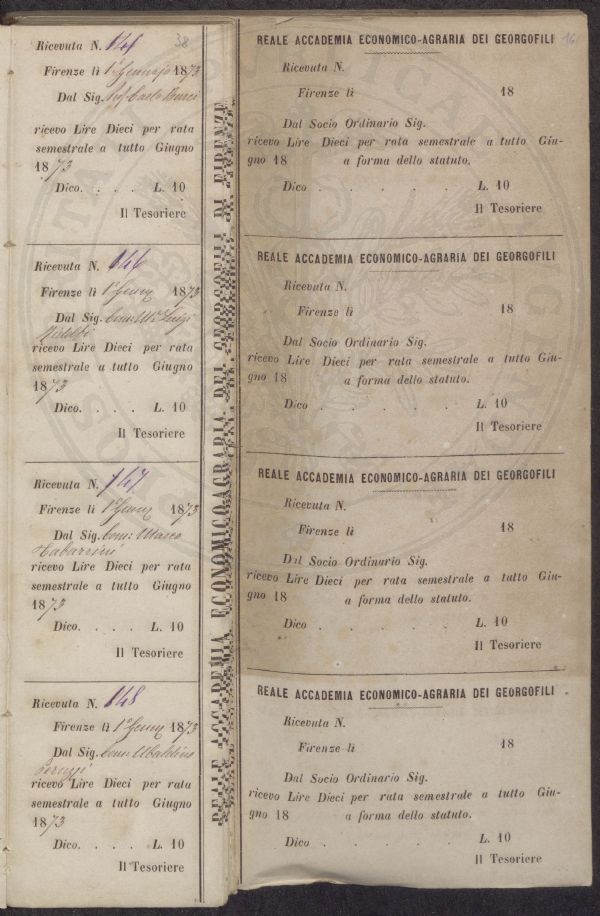 Ricevuta N. 145
38
Firenze lì 1° Gennaio 1873
Dal Sig. Carlo
ricevo Lire Dieci per rata
semestrale a tutto Giugno
1873
Dico. . . . L. 10
Il Tesoriere
Ricevuta N. 146
Firenze lì 1° Genn 1873
Dal Sig. Luigi
Ridolfi
ricevo Lire Dieci per rata
semestrale a tutto Giugno
1873
Dico. . . . L. 10
Il Tesoriere
Ricevuta N. 147
Firenze lì 1° Genn 1873
Dal Sig. Com: Marco
Tabarrini
ricevo Lire Dieci per rata
semestrale a tutto Giugno
1873
Dico. . . . L. 10
Il Tesoriere
Ricevuta N. 148
Firenze lì 1° Genn 1873
Dal Sig. Com: Ubaldino
Peruzzi
ricevo Lire Dieci per rata
semestrale a tutto Giugno
1873
Dico. . . . L. 10
Il Tesoriere
REALE ACCADEMIA ECONOMICO-AGRARIA DEI GEORGOFILI DI FIRENZE
REALE ACCADEMIA ECONOMICO-AGRARIA DEI GEORGOFILI
Ricevuta N.
Firenze lì 18
Dal Socio Ordinario Sig.
ricevo Lire Dieci per rata semestrale a tutto Giu-
gno 18 a forma dello statuto.
Dico . . . . . L. 10
Il Tesoriere
REALE ACCADEMIA ECONOMICO-AGRARIA DEI GEORGOFILI
Ricevuta N.
Firenze lì 18
Dal Socio Ordinario Sig.
ricevo Lire Dieci per rata semestrale a tutto Giu-
gno 18 a forma dello statuto.
Dico . . . . . L. 10
Il Tesoriere
REALE ACCADEMIA ECONOMICO-AGRARIA DEI GEORGOFILI
Ricevuta N.
Firenze lì 18
Dal Socio Ordinario Sig.
ricevo Lire Dieci per rata semestrale a tutto Giu-
gno 18 a forma dello statuto.
Dico . . . . . L. 10
Il Tesoriere
REALE ACCADEMIA ECONOMICO-AGRARIA DEI GEORGOFILI
Ricevuta N.
Firenze lì 18
Dal Socio Ordinario Sig.
ricevo Lire Dieci per rata semestrale a tutto Giu-
gno 18 a forma dello statuto.
Dico . . . . . L. 10
Il Tesoriere